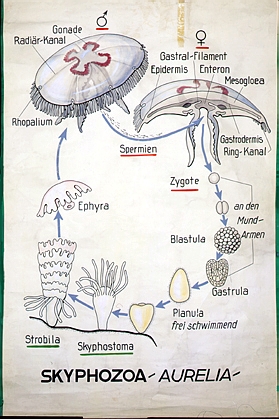 ♂
♀
Gonade
Radiär-Kanal
Gastral-Filament
Epidermis Enteron
Mesogloea
Rhopalium
Spermien
Gastrodermis
Ring-Kanal
Zygote
an den
Mund-
Armen
Ephyra
Blastula
Gastrula
Planula
frei schwimmend
Strobila
Skyphostoma
SKYPHOZOA - AURELIA -